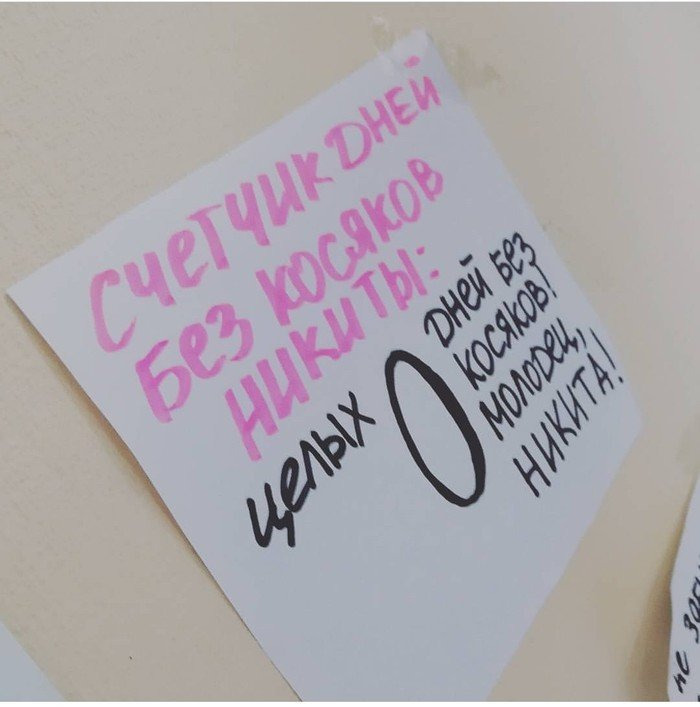 СЧЕТЧИК ДНЕЙ
БЕЗ КОСЯКОВ
НИКИТЫ:
ЦЕЛЫХ 0 ДНЕЙ БЕЗ
КОСЯКОВ!
МОЛОДЕЦ,
НИКИТА!
не